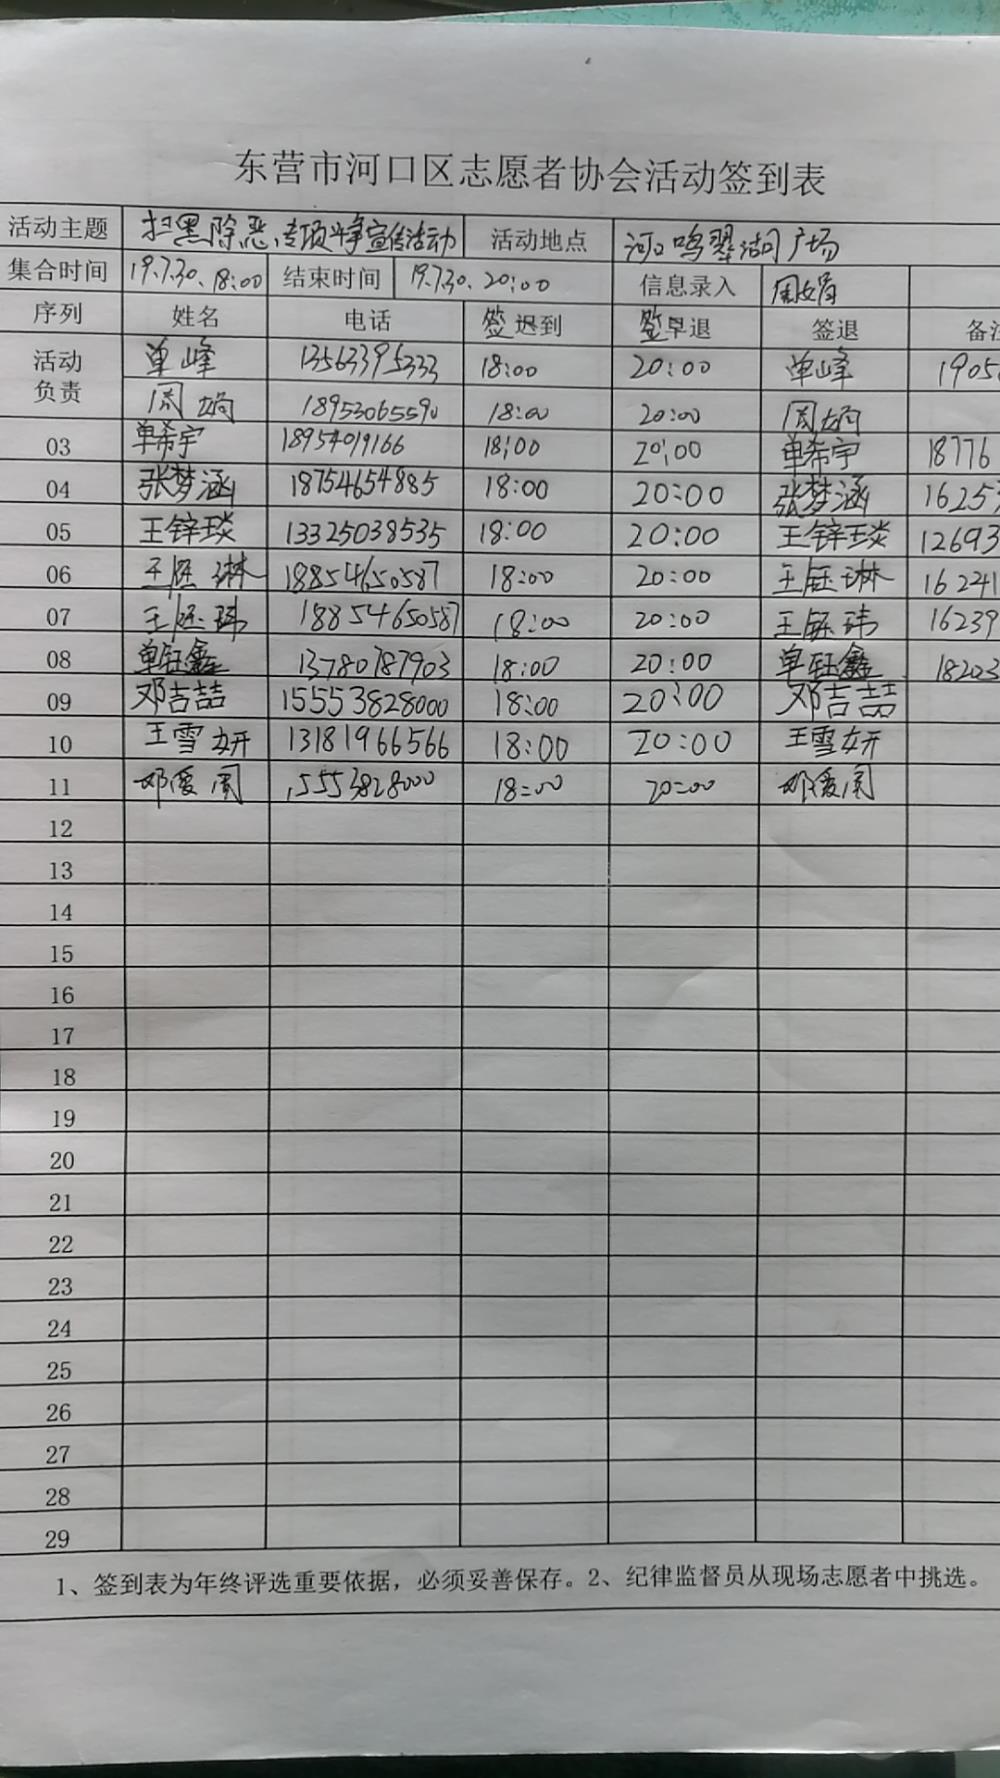 东营市河口区志愿者协会活动签到表
活动主题 扫黑除恶专项斗争宣传活动 活动地点 河口鸣翠湖广场
集合时间 19.7.30、18:00 结束时间 19.7.30、20:00 信息录入 周娟
序列 姓名 电话 签迟到 签早退 签退 备注
活动负责 单峰 13563395333 18:00 20:00 单峰 1905
周娟 18953065590 18:00 20:00 周娟
03 单希宇 18954019166 18:00 20:00 单希宇 18776
04 张梦涵 18754654885 18:00 20:00 张梦涵 16257
05 王锌琰 13325038535 18:00 20:00 王锌琰 12693
06 王钰琳 18854650587 18:00 20:00 王钰琳 16241
07 王钰玮 18854650587 18:00 20:00 王钰玮 16239
08 单钰鑫 13780787903 18:00 20:00 单钰鑫 18203
09 邓吉喆 15553828000 18:00 20:00 邓吉喆
10 王雪妍 13181966566 18:00 20:00 王雪妍
11 邓爱国 15553828000 18:00 20:00 邓爱国
12
13
14
15
16
17
18
19
20
21
22
23
24
25
26
27
28
29
1、签到表为年终评选重要依据，必须妥善保存。2、纪律监督员从现场志愿者中挑选。